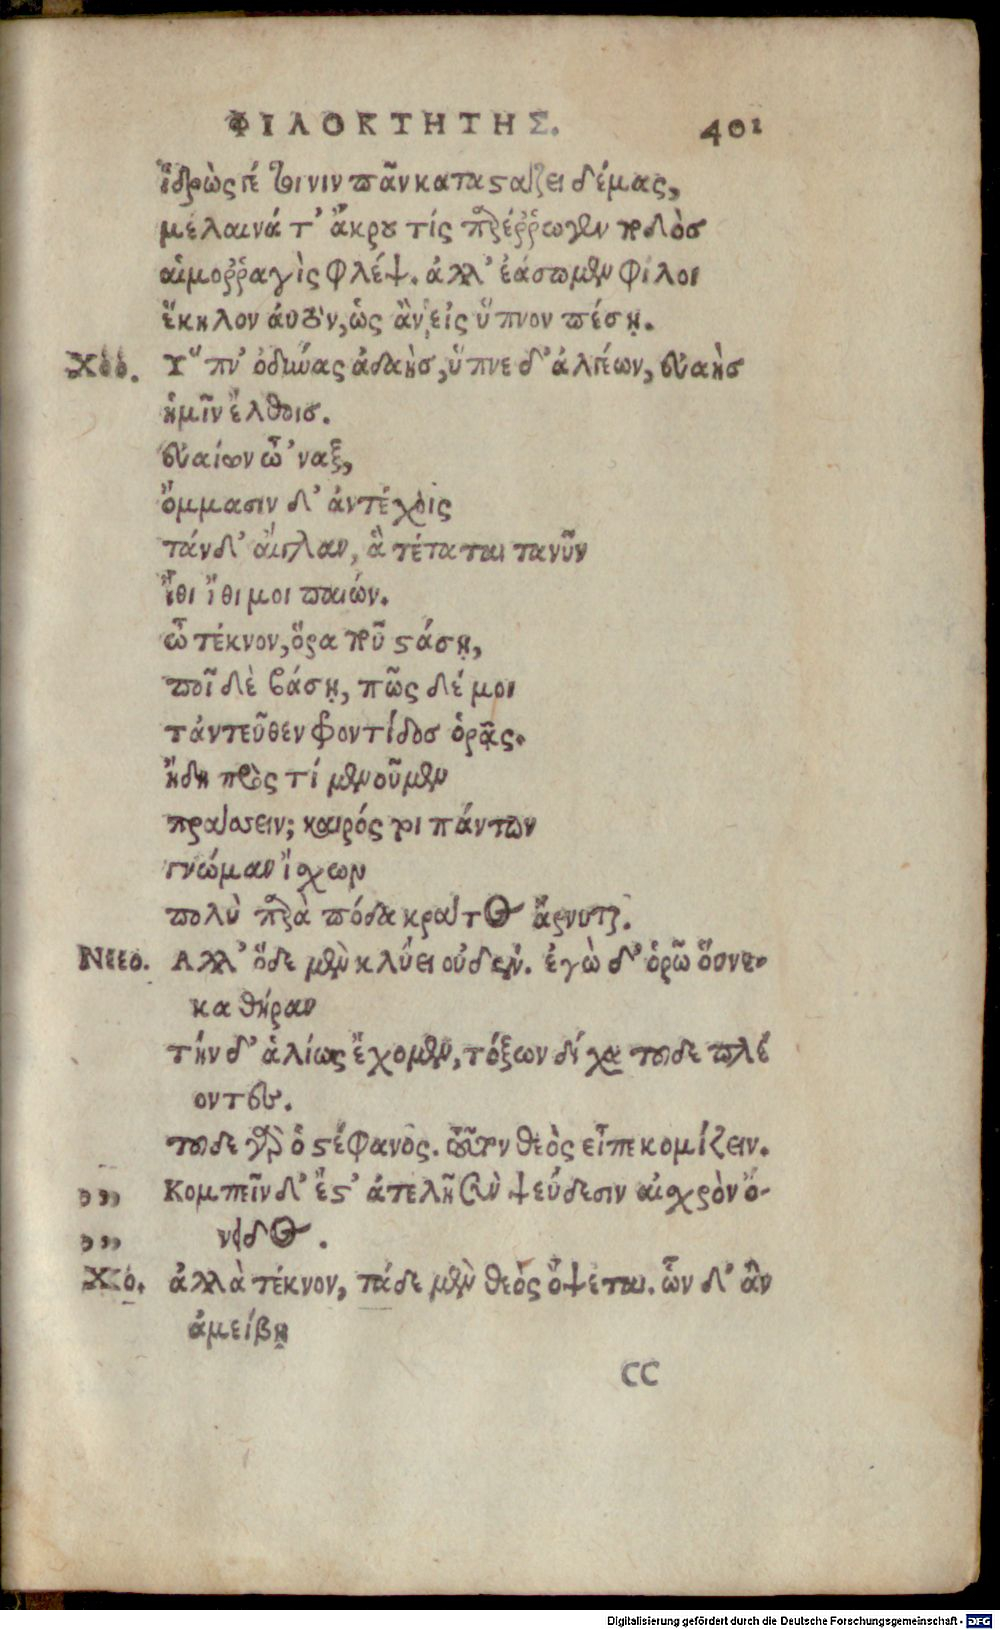 ΦΙΛΟΚΤΗΤΗΣ. 401
ἱδρὼς γέ τοι νιν πᾶν καταστάζει δέμας,
μέλαινά τ' ἄκρου τίς παρέῤῥωγεν ποδὸς
αἱμοῤῥαγὶς φλέψ. ἀλλ' ἐάσωμεν φίλοι
ἕκηλον αὐτὸν, ὡς ἂν εἰς ὕπνον πέσῃ.
Χόο. Υ῞πν' ὀδύνας ἀδαὴς, ὕπνε δ' ἀλγέων, εὐαὴς
ἡμῖν ἔλθοις.
εὐαίων ὦ 'ναξ,
ὄμμασιν δ' ἀντέχοις
τάνδ' αἴγλαν, ἃ τέταται τανῦν
ἴθι ἴθι μοι παιών.
ὦ τέκνον, ὅρα ποῦ στάσῃ,
ποῖ δὲ βάσῃ, πῶς δέ μοι
τἀντεῦθεν φροντίδος ὁρᾷς.
ἤδη πρὸς τί μενοῦμεν
πράσσειν; καιρός τοι πάντων
γνώμαν ἴσχων
πολὺ παρὰ πόδα κράτος ἄρνυται.
Νεεο. Αλλ' ὅδε μὲν κλύει οὐδέν. ἐγὼ δ' ὁρῶ οὕνε-
κα θήραν
τήν δ' ἁλίως ἔχομεν, τόξων δίχα τοῦδε πλέ
οντες.
τοῦδε γὰρ ὁ στέφανος. τοῦτον θεὸς εἶπε κομίζειν.
,,, Κομπεῖν δ' ἔστ' ἀτελῆ σὺν ψεύδεσιν αἰσχρὸν ὄ-
,,, νειδος.
Χό. ἀλλὰ τέκνον, τάδε μὲν θεὸς ὄψεται. ὧν δ' ἂν
ἀμείβῃ
CC
Digitalisierung gefördert durch die Deutsche Forschungsgemeinschaft - DFG